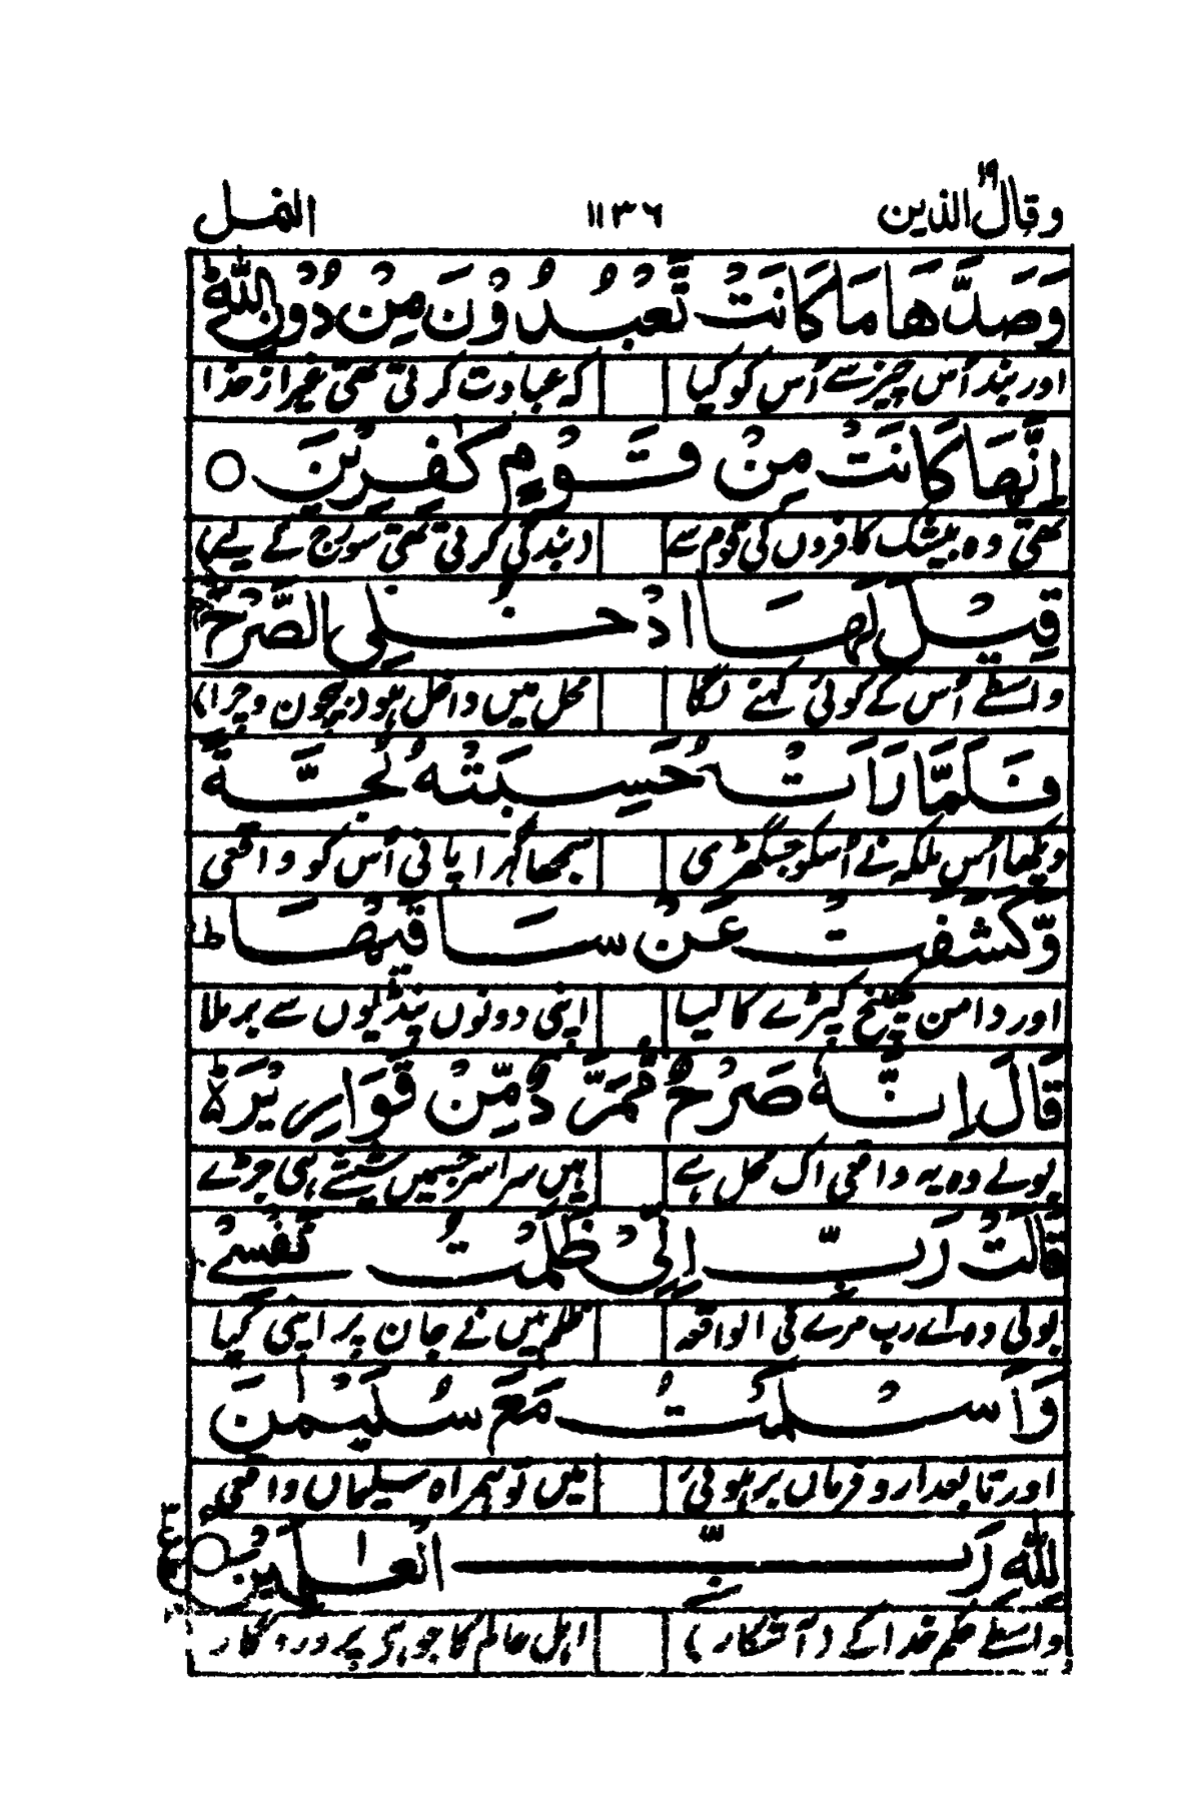 وقال الذین ١٩ ١١٣٦ النمل
وَصَدَّهَا مَا كَانَتْ تَّعْبُدُ مِنْ دُوْنِ اللّٰهِ ؕ
اور بند اُس چیز سے اُس کو کیا کہ عبادت کرتی تھی غیر از خدا
اِنَّهَا كَانَتْ مِنْ قَوْمٍ كٰفِرِيْنَ ○
تھی وہ بیشک کافروں کی قوم سے (بندگی کرتی تھی سورج کے لیے)
قِيْلَ لَهَا ادْخُلِى الصَّرْحَ ۚ
واسطے اُس کے کوئی کہنے لگا محل میں داخل ہو (بیچون وچرا)
فَلَمَّا رَاَتْهُ حَسِبَتْهُ لُجَّةً
دیکھا اُس ملکہ نے اُسکو جس گھڑی سمجھا گہرا پانی اُس کو واقعی
وَّكَشَفَتْ عَنْ سَاقَيْهَا ؕ
اور دامن کھینچ کپڑے کا لیا اپنی دونوں پنڈلیوں سے برملا
قَالَ اِنَّهٗ صَرْحٌ مُّمَرَّدٌ مِّنْ قَوَارِيْرَ ۬ؕ
بولے وہ یہ واقعی اک محل ہے ہیں سراسر جسمیں شیشے ہی جڑے
قَالَتْ رَبِّ اِنِّىْ ظَلَمْتُ نَفْسِىْ
بولی وہ اے رب مرے فی الواقعہ ظلم میں نے جان پر اپنی کیا
وَاَسْلَمْتُ مَعَ سُلَيْمٰنَ
اور تابعدار و فرماں بر ہوئی میں تو ہمراہ سلیماں واقعی
لِلّٰهِ رَبِّ الْعٰلَمِيْنَ ○
واسطے حکم خدا کے (آشکار) اہل عالم کا جو ہی پروردگار